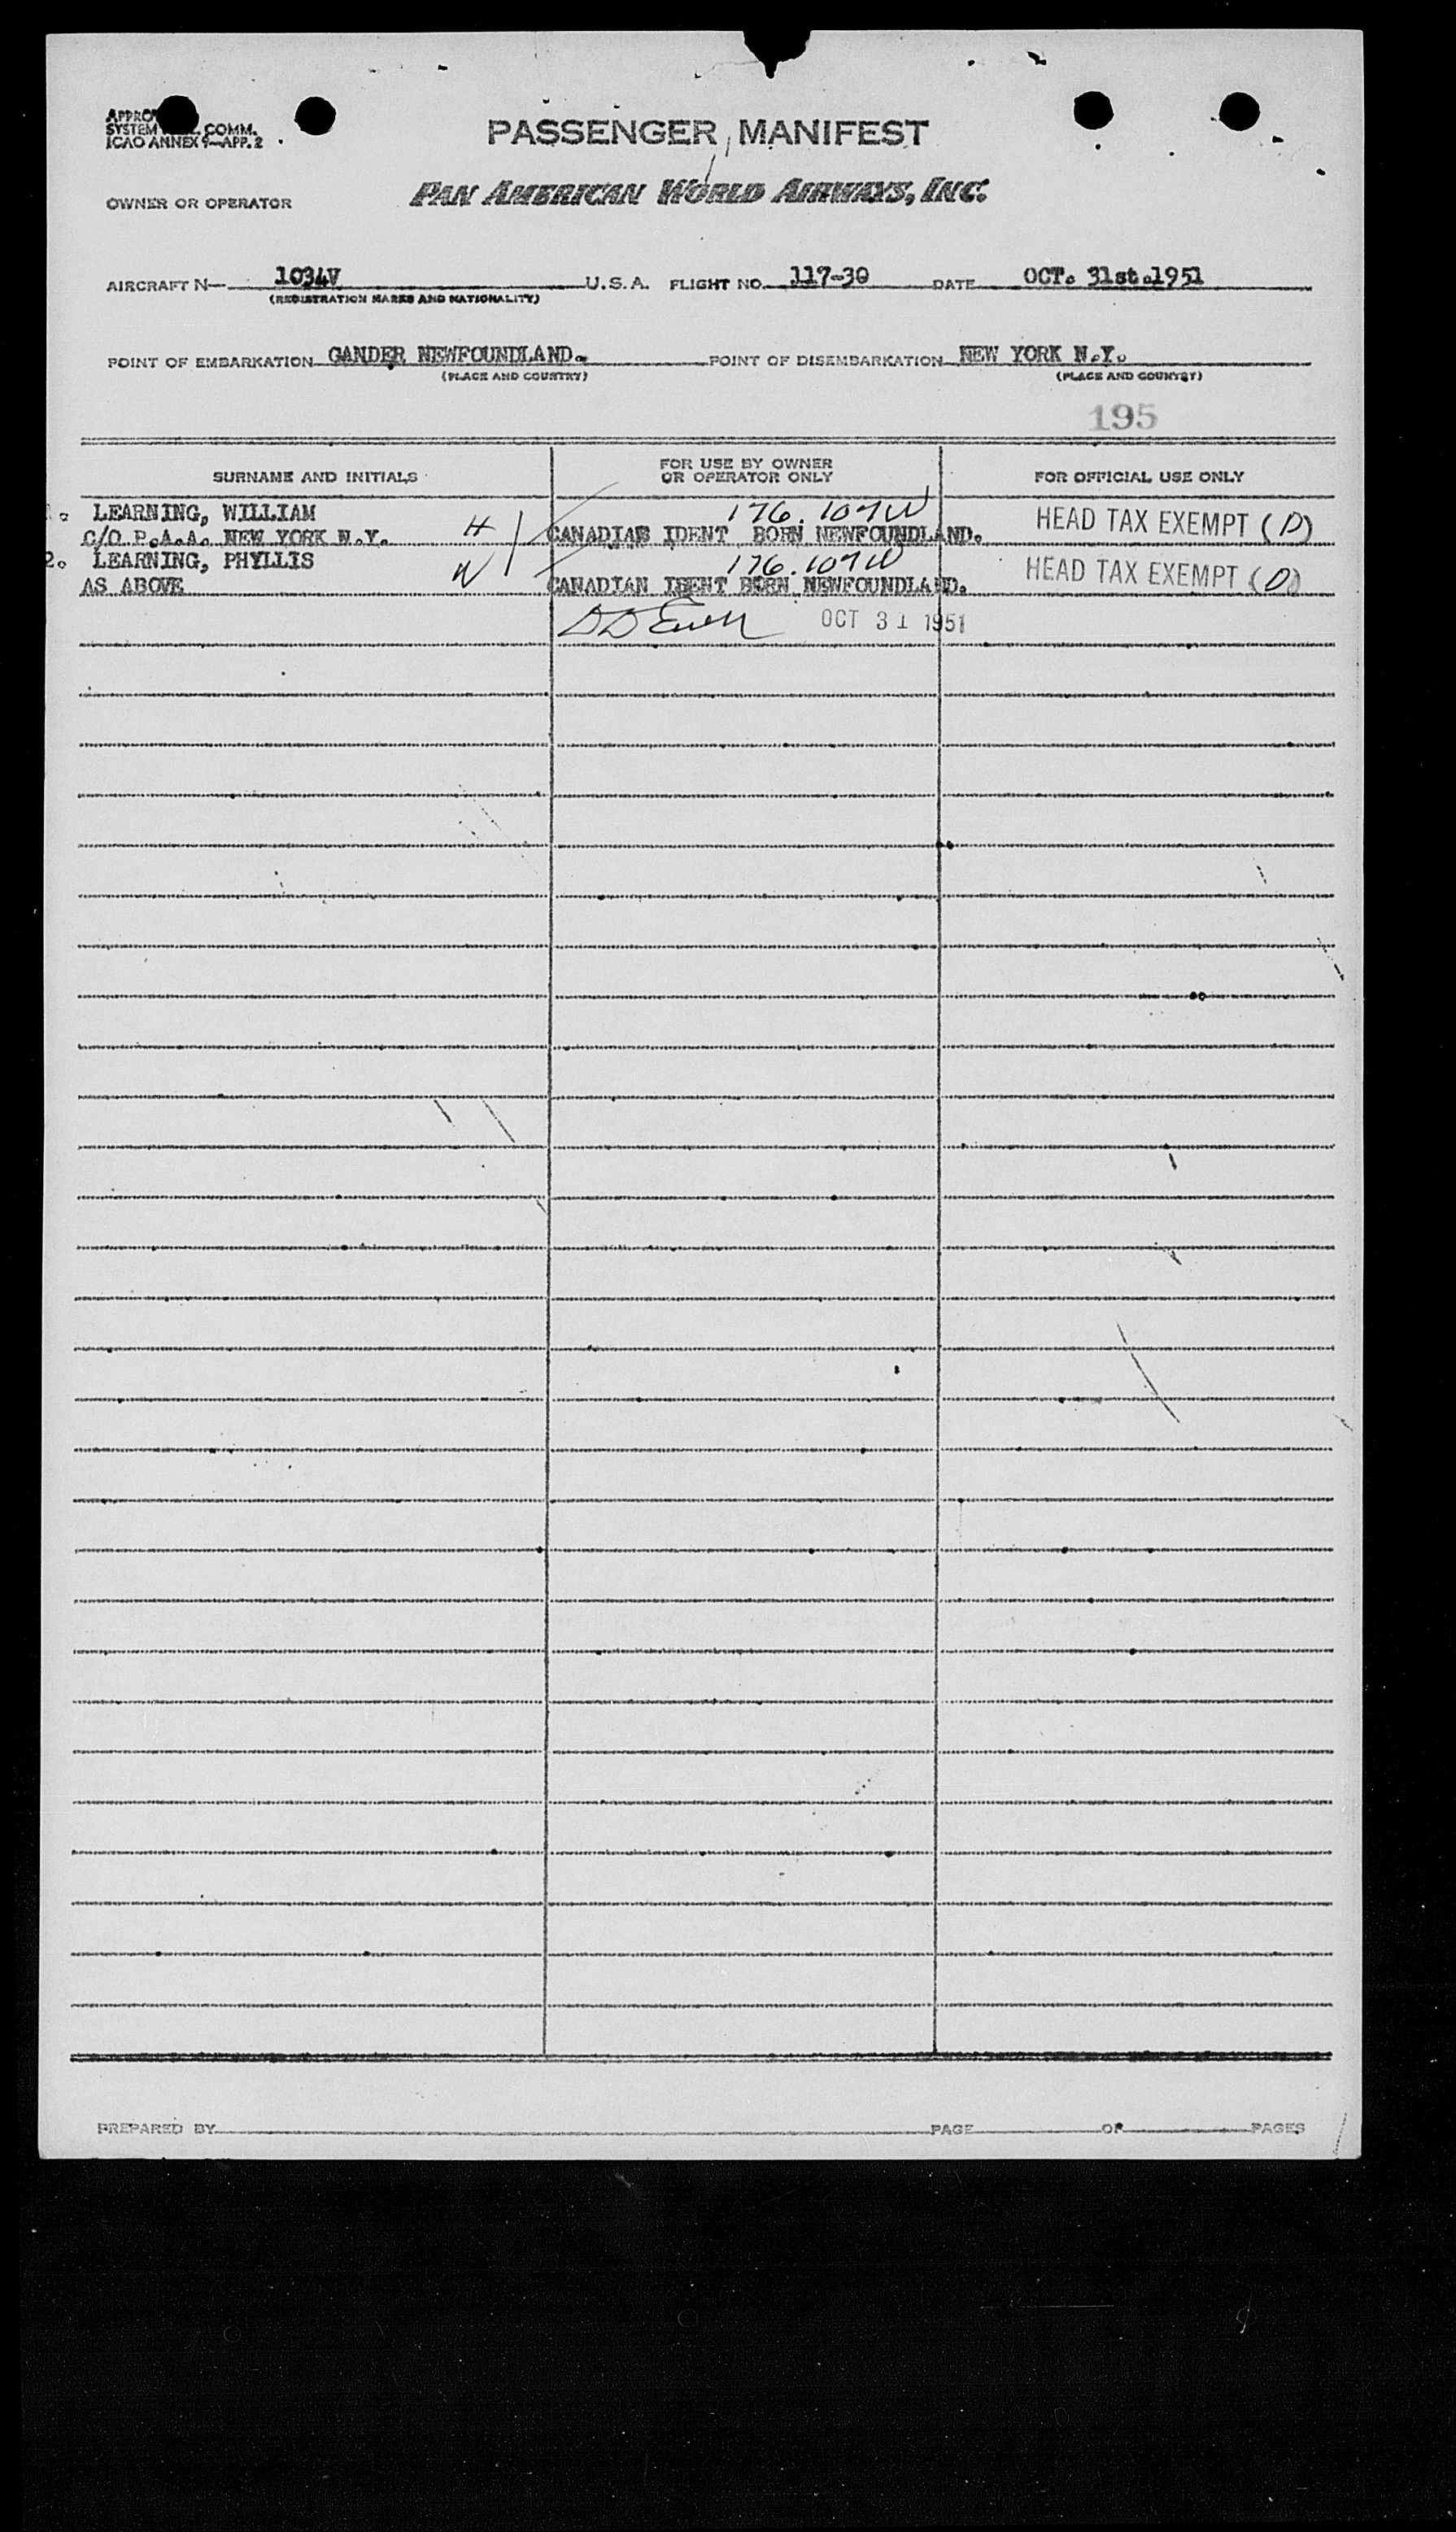 PASSENGER MANIFEST
SYSTEM COMM.
ICAO ANNEX 9—APP. 2
OWNER OR OPERATOR PAN AMERICAN WORLD AIRWAYS, INC.
AIRCRAFT N— 1034V U.S.A. FLIGHT NO. 117-30 DATE OCT. 31st.1951
(REGISTRATION MARKS AND NATIONALITY)
POINT OF EMBARKATION GANDER NEWFOUNDLAND. POINT OF DISEMBARKATION NEW YORK N.Y.
(PLACE AND COUNTRY) (PLACE AND COUNTRY)
195
SURNAME AND INITIALS
FOR USE BY OWNER
OR OPERATOR ONLY
FOR OFFICIAL USE ONLY
LEARNING, WILLIAM 176.107W
C/O P.A.A. NEW YORK N.Y. H CANADIAN IDENT BORN NEWFOUNDLAND. HEAD TAX EXEMPT (D)
2. LEARNING, PHYLLIS 176.107W
AS ABOVE W CANADIAN IDENT BORN NEWFOUNDLAND. HEAD TAX EXEMPT (D)
OCT 31 1951
PREPARED BY PAGE OF PAGES